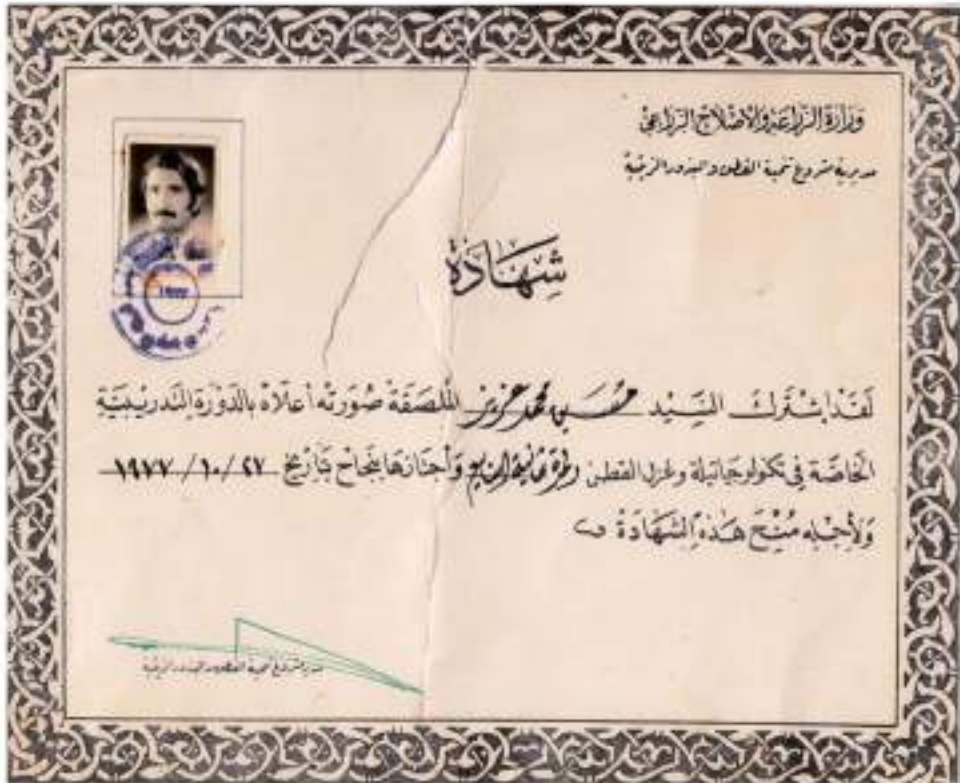 وزارة الزراعة والإصلاح الزراعي
مديرية مشروع تنمية القطن والبذور الزيتية
شهادة
لقد اشترك السيد محمد عزيز الملصقة صورته أعلاه بالدورة التدريبية
الخاصة في تكنولوجيا تيلة وغزل القطن وأجتازها بنجاح بتاريخ ٢٧ / ١٠ / ١٩٧٧
ولأجله منح هذه الشهادة
مدير مشروع تنمية القطن والبذور الزيتية